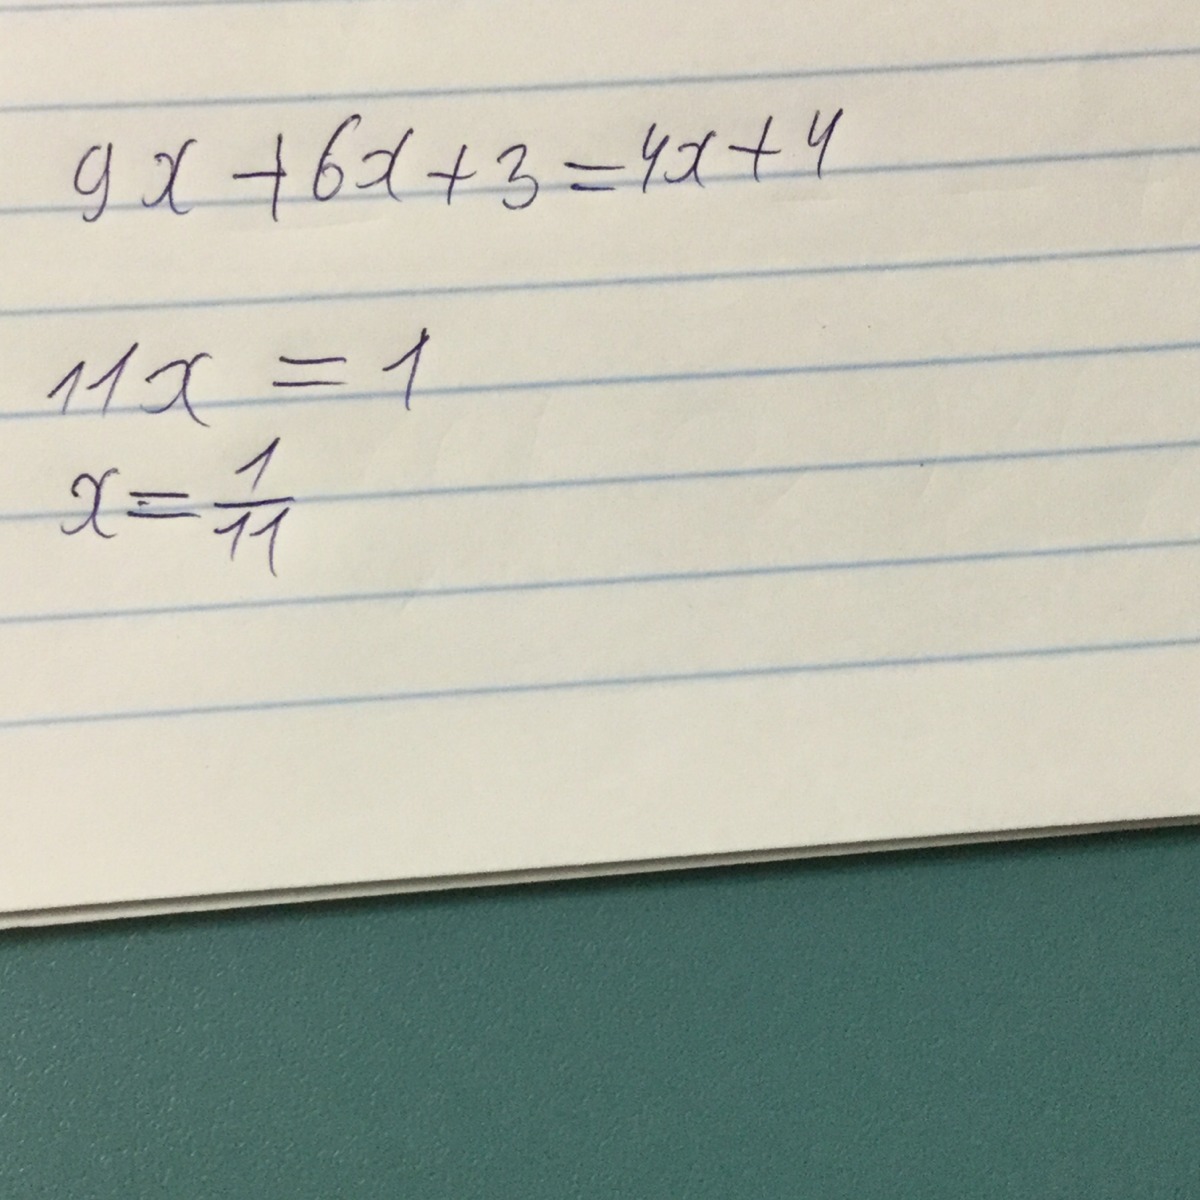 9x + 6x + 3 = 4x + 4
11x = 1
x = 1/11